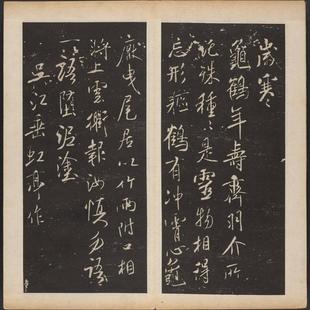 歲寒
龜鶴年壽齊羽介所
託殊種種是靈物相得
忘形軀鶴有沖霄心龜
厭曳尾居以竹兩附口相
將上雲衢報汝慎勿語
一語墮泥塗
吳江垂虹亭作